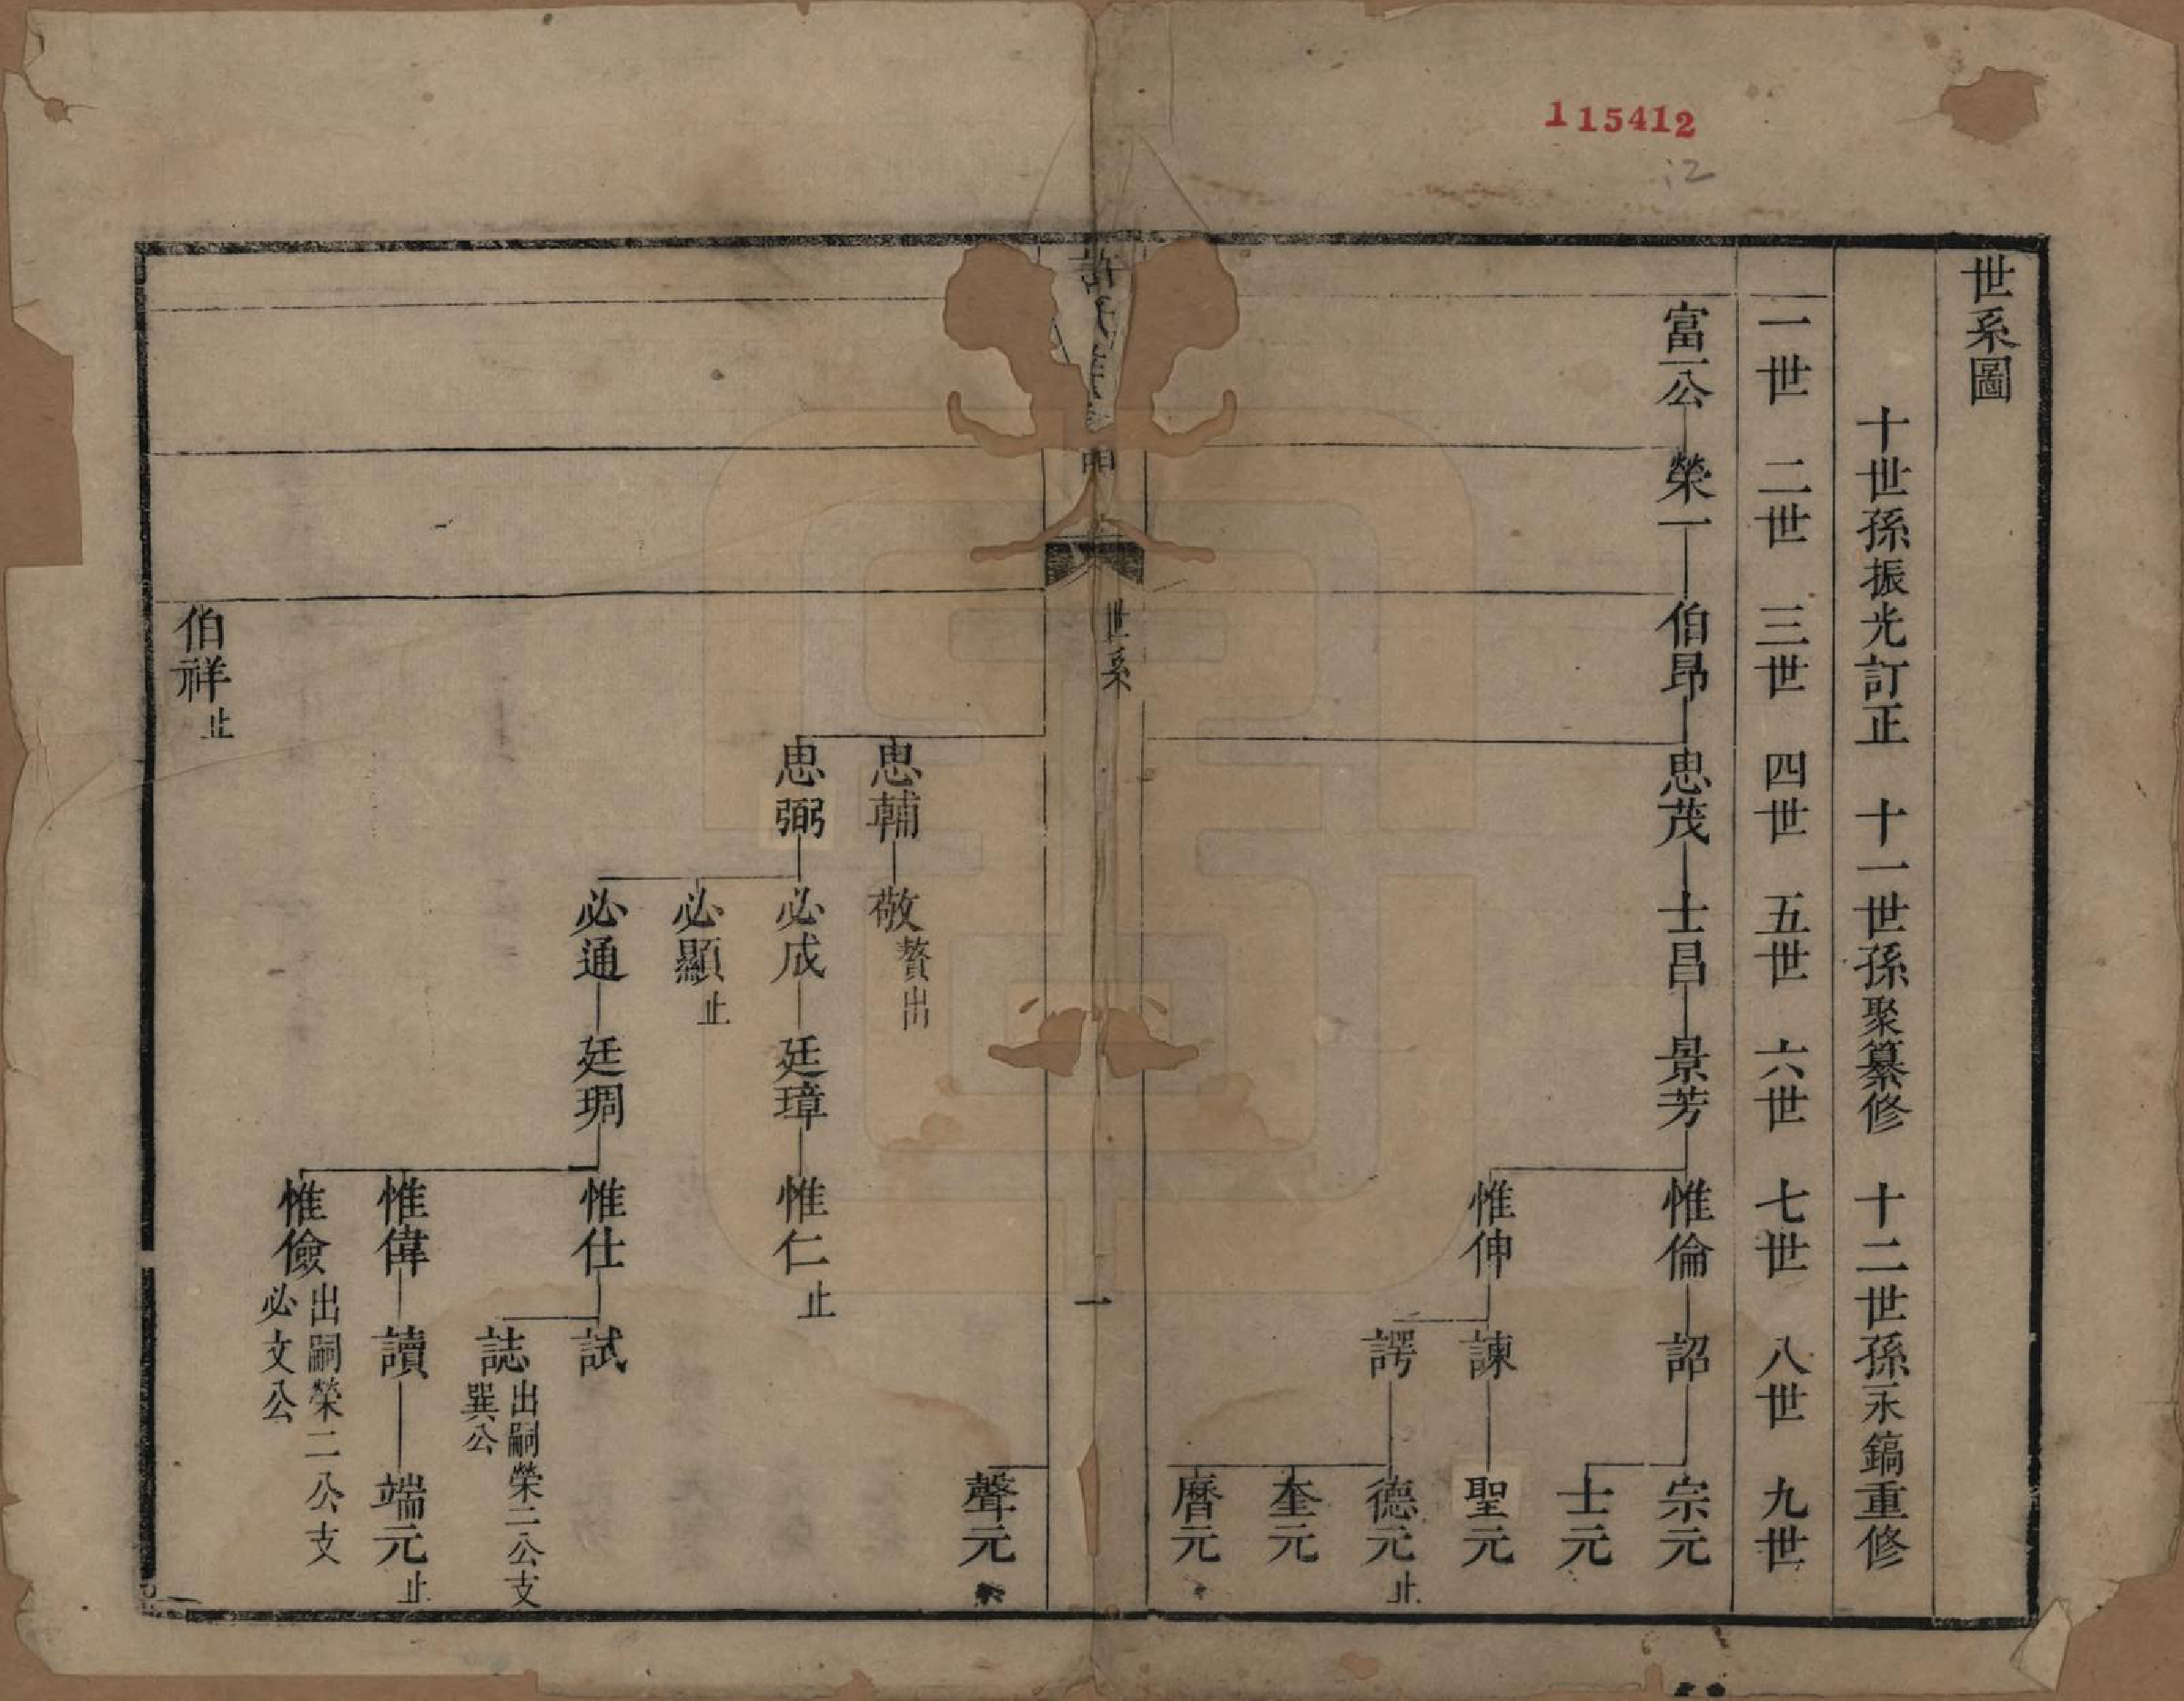 115412
12
世系圖
十世孫振光訂正 十一世孫聚纂修 十二世孫永鎬重修
一世 二世 三世 四世 五世 六世 七世 八世 九世
富一公 榮一 伯昂 思茂 士昌 景芳 惟倫 詔 宗元
士元
惟伸 諫 聖元
諤 德元 止
奎元
曆元
許氏
世系
一
聲元
思輔 敬 贅出
思弼 必成 廷璋 惟仁 止
必顯 止
必通 廷琱 惟仕 試
誌 出嗣榮二公支
巽公
惟偉 讀 端元 止
惟儉 出嗣榮二公支
必文公
伯祥 止